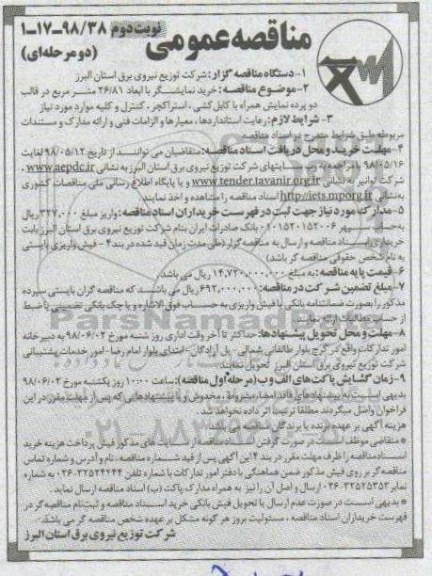 مناقصه عمومی
نوبت دوم ۹۸/۳۸-۱۷-۱
(دو مرحله‌ای)
۱- دستگاه مناقصه گزار: شرکت توزیع نیروی برق استان البرز
۲- موضوع مناقصه: خرید نمایشگر با ابعاد ۲۶/۸۱ متر مربع در قالب
دو پرده نمایش همراه با کابل کشی، استراکچر، کنترلر و کلیه موارد مورد نیاز
۳- شرایط لازم: رعایت استانداردها، معیارها و الزامات فنی و ارائه مدارک و مستندات
مربوطه طبق شرایط مندرج در اسناد مناقصه
۴- مهلت خرید و محل دریافت اسناد مناقصه: متقاضیان می توانند از تاریخ ۹۸/۰۵/۱۲ لغایت
۹۸/۰۵/۱۶ با مراجعه به سایتهای شرکت توزیع نیروی برق استان البرز به نشانی www.aepdc.ir،
شرکت توانیر به نشانی www.tender.tavanir.org.ir و یا پایگاه اطلاع رسانی ملی مناقصات کشوری
به نشانی http://iets.mporg.ir اسناد مناقصه را مشاهده و اخذ نمایند.
۵- مدارک مورد نیاز جهت ثبت در فهرست خریداران اسناد مناقصه: واریز مبلغ ۳۲۷,۰۰۰ ریال
به حساب مهر ۰۲۰۱۵۲۰۱۵۲۰۰۶ بانک صادرات ایران بنام شرکت توزیع نیروی برق استان البرز بابت
خریداری اسناد مناقصه و ارسال به مناقصه گزار (طی مدت زمان قید شده در بند ۴- فیش واریزی بایستی
به نام شخص حقوقی مناقصه گر باشد)
۶- قیمت پایه مناقصه: به مبلغ ۱۴,۷۳۰,۰۰۰,۰۰۰ ریال می باشد.
۷- مبلغ تضمین شرکت در مناقصه: ۶۹۲,۰۰۰,۰۰۰ ریال می باشد که مناقصه گران بایستی سپرده
مذکور را بصورت ضمانتنامه بانکی یا فیش واریزی به حساب فوق الاشاره و یا چک بانکی تضمینی یا ضبط
از حساب مطالبات ارائه نمایند.
۸- مهلت و محل تحویل پیشنهادها: حداکثر تا آخر وقت اداری روز شنبه مورخ ۹۸/۰۶/۰۲ به دبیرخانه
امور تدارکات واقع در کرج بلوار طالقانی شمالی - پل آزادگان - ابتدای بلوار امام رضا - امور خدمات پشتیبانی
شرکت توزیع نیروی برق استان البرز تحویل نمایند.
۹- زمان گشایش پاکت های الف و ب (مرحله اول مناقصه): ساعت ۱۰:۰۰ روز یکشنبه مورخ ۹۸/۰۶/۰۳
بدیهی است به پیشنهادهای فاقد امضاء، مشروط، مخدوش و پیشنهادهایی که پس از مهلت مقرر در این
فراخوان واصل میگردند مطلقا ترتیب اثر داده نخواهد شد.
هزینه آگهی بر عهده برنده یا برندگان مناقصه می باشد
* متقاضی موظف است در صورت گرفتن اسناد از سایت های مذکور فیش پرداخت هزینه خرید
اسناد مناقصه را ظرف مهلت مقرر در بند ۴ این آگهی پس از قید شماره مناقصه، نام و آدرس و شماره تماس
مناقصه گر بر روی فیش مذکور ضمن هماهنگی با دفتر امور تدارکات با شماره تلفن ۳۲۵۲۴۲۴۴-۰۲۶ به شماره
نمابر ۳۲۵۲۵۳۵۲-۰۲۶ ارسال و اصل آن را نیز به همراه مدارک پاکت (ب) اسناد مناقصه ارسال نماید.
* بدیهی است در صورت عدم ارسال یا تحویل فیش بانکی خرید اسناد مناقصه و ثبت نام مناقصه گر در
فهرست خریداران اسناد مناقصه، مسئولیت بروز هر گونه مشکل بر عهده شخص مناقصه گر می باشد.
شرکت توزیع نیروی برق استان البرز